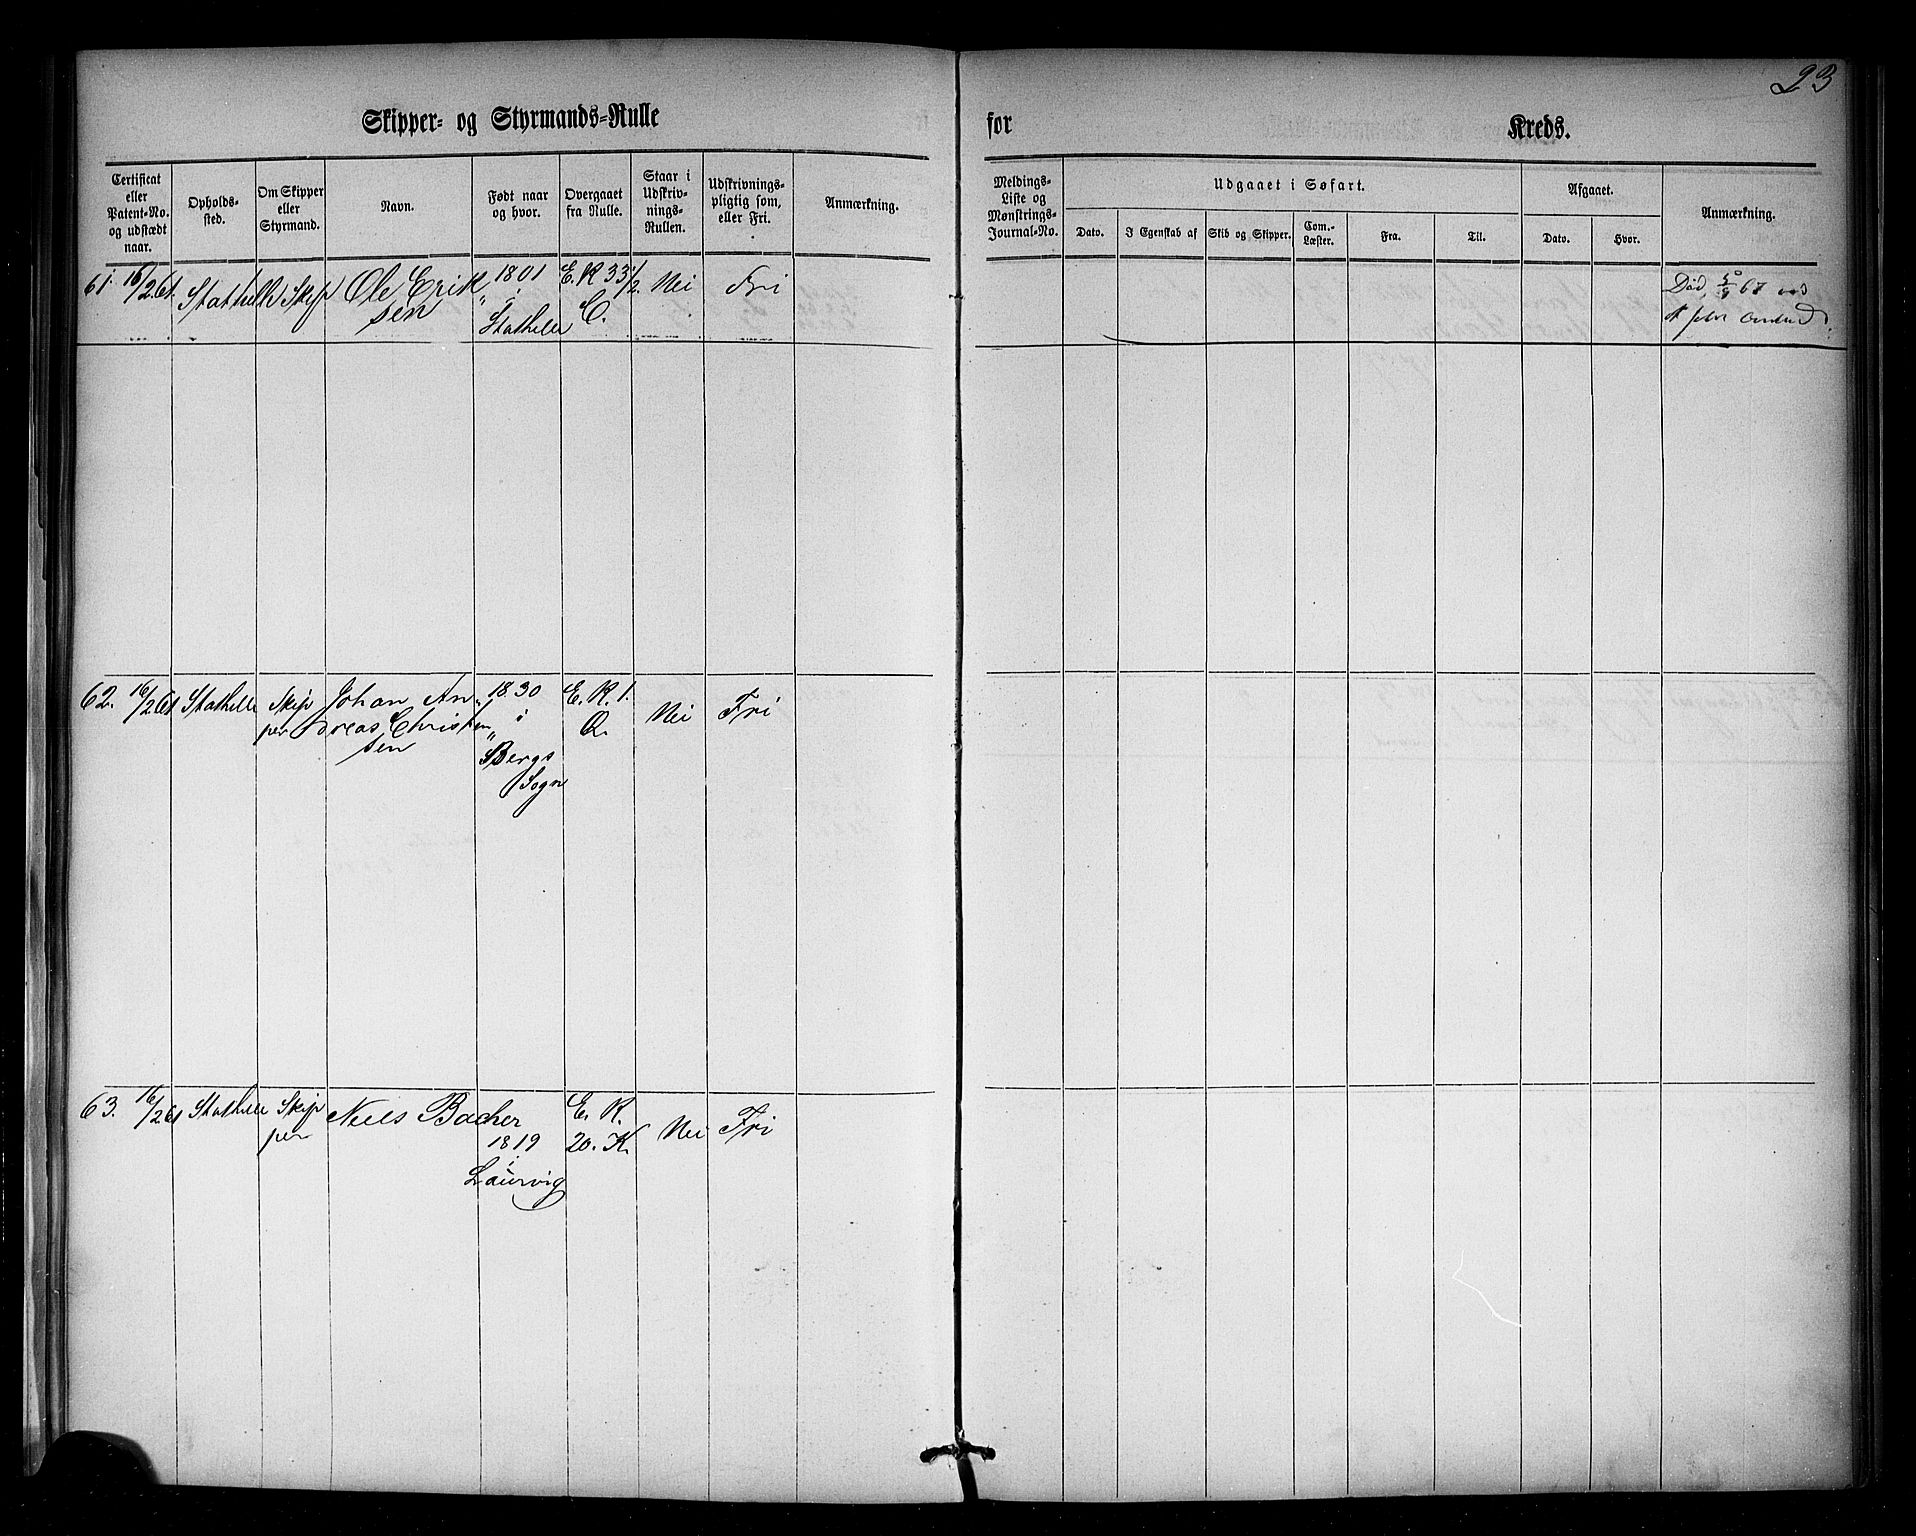 23
Skipper- og Styrmands-Rulle for Kreds.
Certificat eller Patent-No. og udstædt naar.
Opholds-sted.
Om Skipper eller Styrmand.
Navn.
Født naar og hvor.
Overgaaet fra Rulle.
Staar i Udskriv-nings-Rullen.
Udskrivnings-pligtig som, eller Fri.
Anmærkning.
Meldings-Liste og Mønstrings-Journal-No.
Udgaaet i Søfart.
Dato.
I Egenskab af
Skib og Skipper.
Com.-Læster.
Fra.
Til.
Afgaaet.
Dato.
Hvor.
Anmærkning.
61. 16/2 61. Stathelle Skip Ole Erik 1801 E. R 33 1/2. Nei Fri Død, 67
sen i C.
Stathelle
62. 16/2 61 Stathelle Skip Johan An 1830 E. R. 1. Nei Fri
per dreas Christen i Q.
sen Bergs
Sogn
63. 16/2 61 Stathelle Skip Niels Bacher E. R. Nei Fri
per 1819 20. K.
i
Laurvig